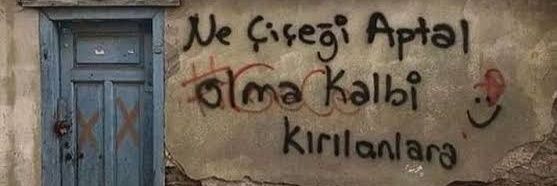 Ne Çiçeği Aptal
olma Kalbi
kırılanlara